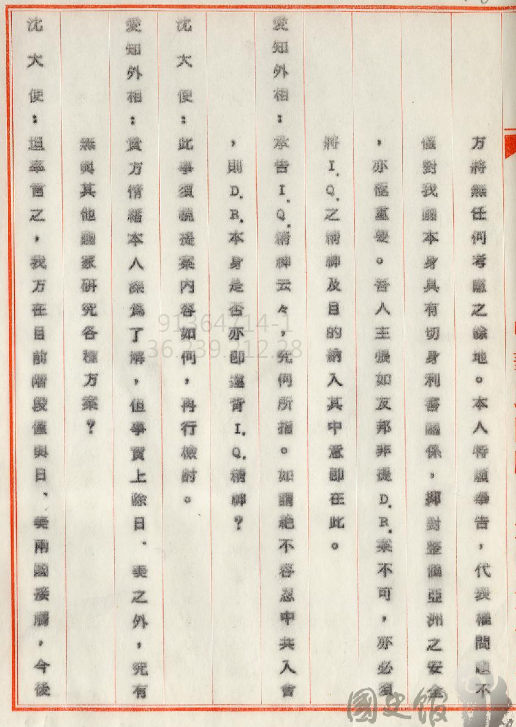 方將無任何考慮之餘地。本人特願奉告，代表權問題不
僅對我國本身具有切身利害關係，抑對整個亞洲之安全
，亦極重要。吾人主張如友邦非提D.R.案不可，亦必須
將I.Q.之精神及目的納入其中意即在此。
愛知外相：承告I.Q.精神云々，究何所指。如謂絕不容忍中共入會
，則D.R.本身是否亦即違背I.Q.精神？
沈大使：此事須視提案內容如何，再行檢討。
愛知外相：貴方情緒本人深為了解，但事實上除日、美之外，究有
無與其他國家研究各種方案？
沈大使：坦率言之，我方在目前階段僅與日、美兩國接觸，今後
91364714-1
國史館